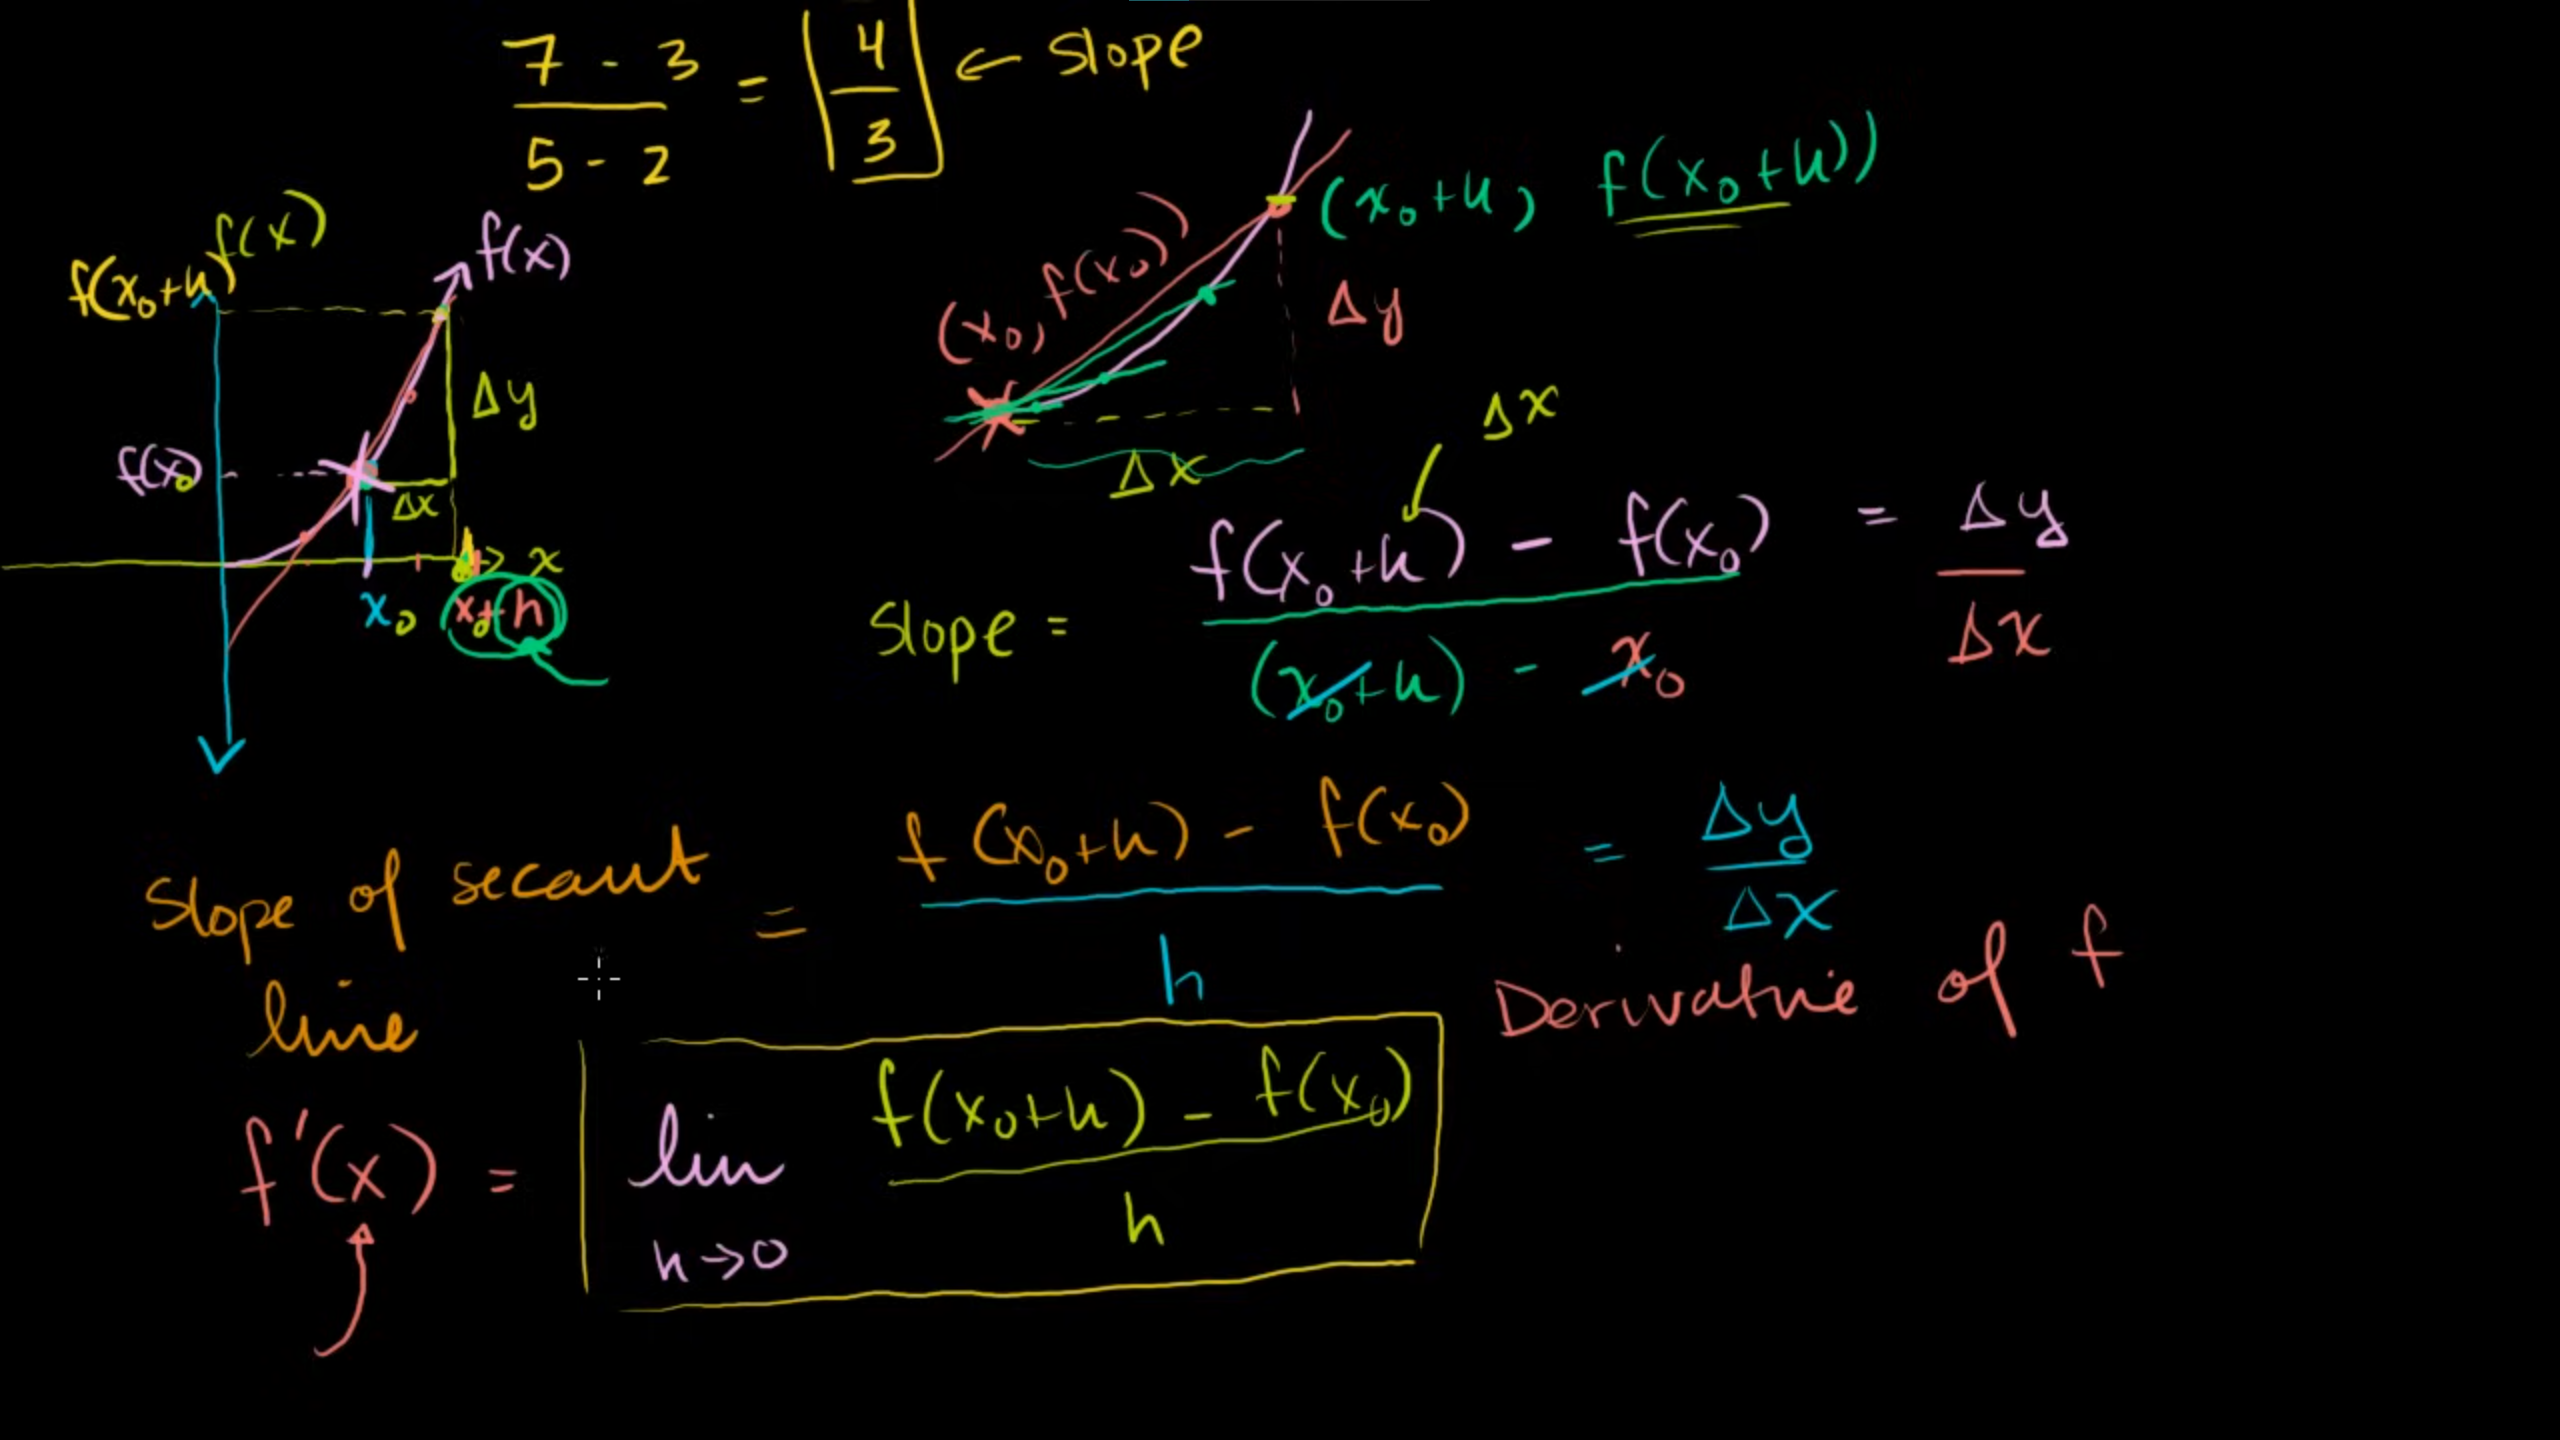 7 - 3 / 5 - 2 = 4 / 3 ← Slope
f(x)
f(x₀+h)
f(x)
Δy
f(x₀)
Δx
x
x₀
x₀+h
(x₀, f(x₀))
(x₀+h, f(x₀+h))
Δy
Δx
Δx
Slope = f(x₀+h) - f(x₀) / (x₀+h) - x₀ = Δy / Δx
Slope of secant
line
= f(x₀+h) - f(x₀) / h = Δy / Δx
Derivative of f
f'(x) = lim h→0 f(x₀+h) - f(x₀) / h